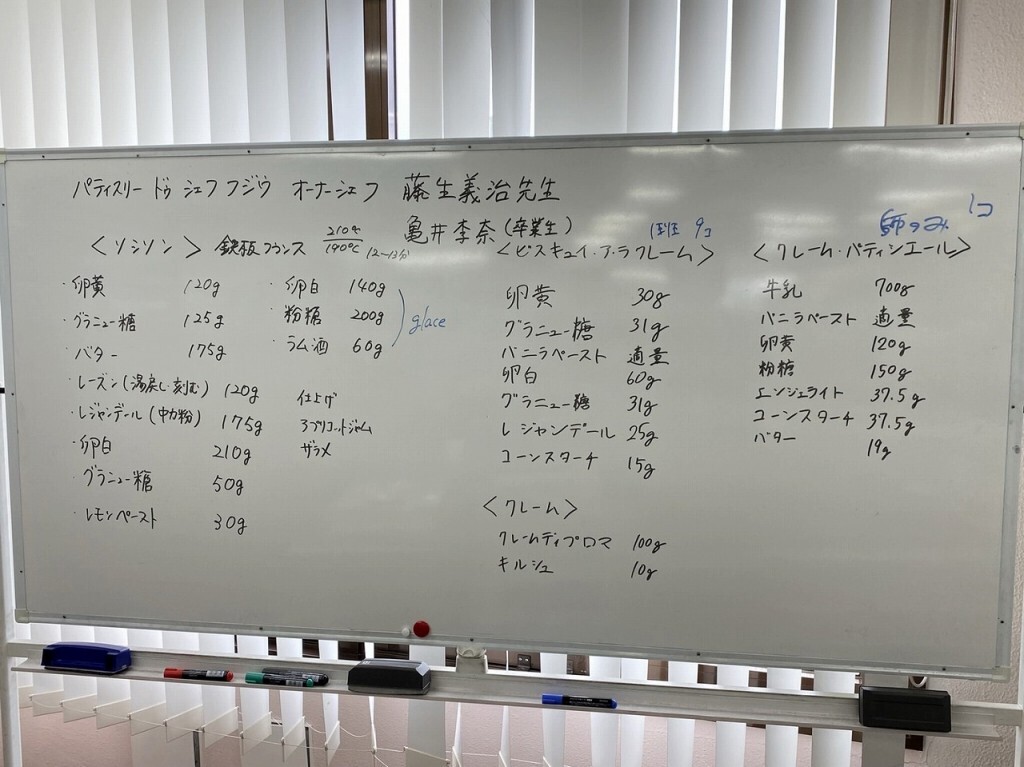 パティスリー ドゥ シェフ フジウ オーナーシェフ 藤生義治先生
亀井李奈(卒業生)
<ソシソン> 鉄板 フランス 210℃ 190℃ 12〜13分
・卵黄 120g
・グラニュー糖 125g
・バター 175g
・レーズン(湯戻し刻む) 120g
・レジャンデール(中力粉) 175g
・卵白 210g
グラニュー糖 50g
・レモンペースト 30g
・卵白 140g
・粉糖 200g
・ラム酒 60g
glace
仕上げ
アプリコットジャム
ザラメ
1班 9コ
<ビスキュイ・ア・ラ クレーム>
卵黄 30g
グラニュー糖 31g
バニラペースト 適量
卵白 60g
グラニュー糖 31g
レジャンデール 25g
コーンスターチ 15g
<クレーム>
クレームディプロマ 100g
キルシュ 10g
師のみ 1コ
<クレーム・パティシエール>
牛乳 700g
バニラペースト 適量
卵黄 120g
粉糖 150g
エンジェライト 37.5g
コーンスターチ 37.5g
バター 19g